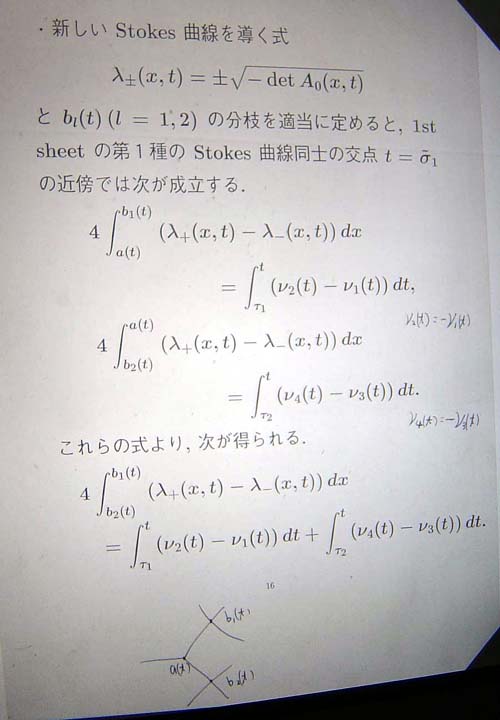 ・新しい Stokes 曲線を導く式
λ±(x, t) = ±√(− det A₀(x, t))
と bₗ(t) (l = 1, 2) の分枝を適当に定めると, 1st
sheet の第1種の Stokes 曲線同士の交点 t = σ̃₁
の近傍では次が成立する.
4 ∫_{a(t)}^{b₁(t)} (λ₊(x, t) − λ₋(x, t)) dx
= ∫_{τ₁}^{t} (ν₂(t) − ν₁(t)) dt,
ν₂(t) = −ν₁(t)
4 ∫_{b₂(t)}^{a(t)} (λ₊(x, t) − λ₋(x, t)) dx
= ∫_{τ₂}^{t} (ν₄(t) − ν₃(t)) dt.
ν₄(t) = −ν₃(t)
これらの式より, 次が得られる.
4 ∫_{b₂(t)}^{b₁(t)} (λ₊(x, t) − λ₋(x, t)) dx
= ∫_{τ₁}^{t} (ν₂(t) − ν₁(t)) dt + ∫_{τ₂}^{t} (ν₄(t) − ν₃(t)) dt.
16
b₁(t)
a(t)
b₂(t)